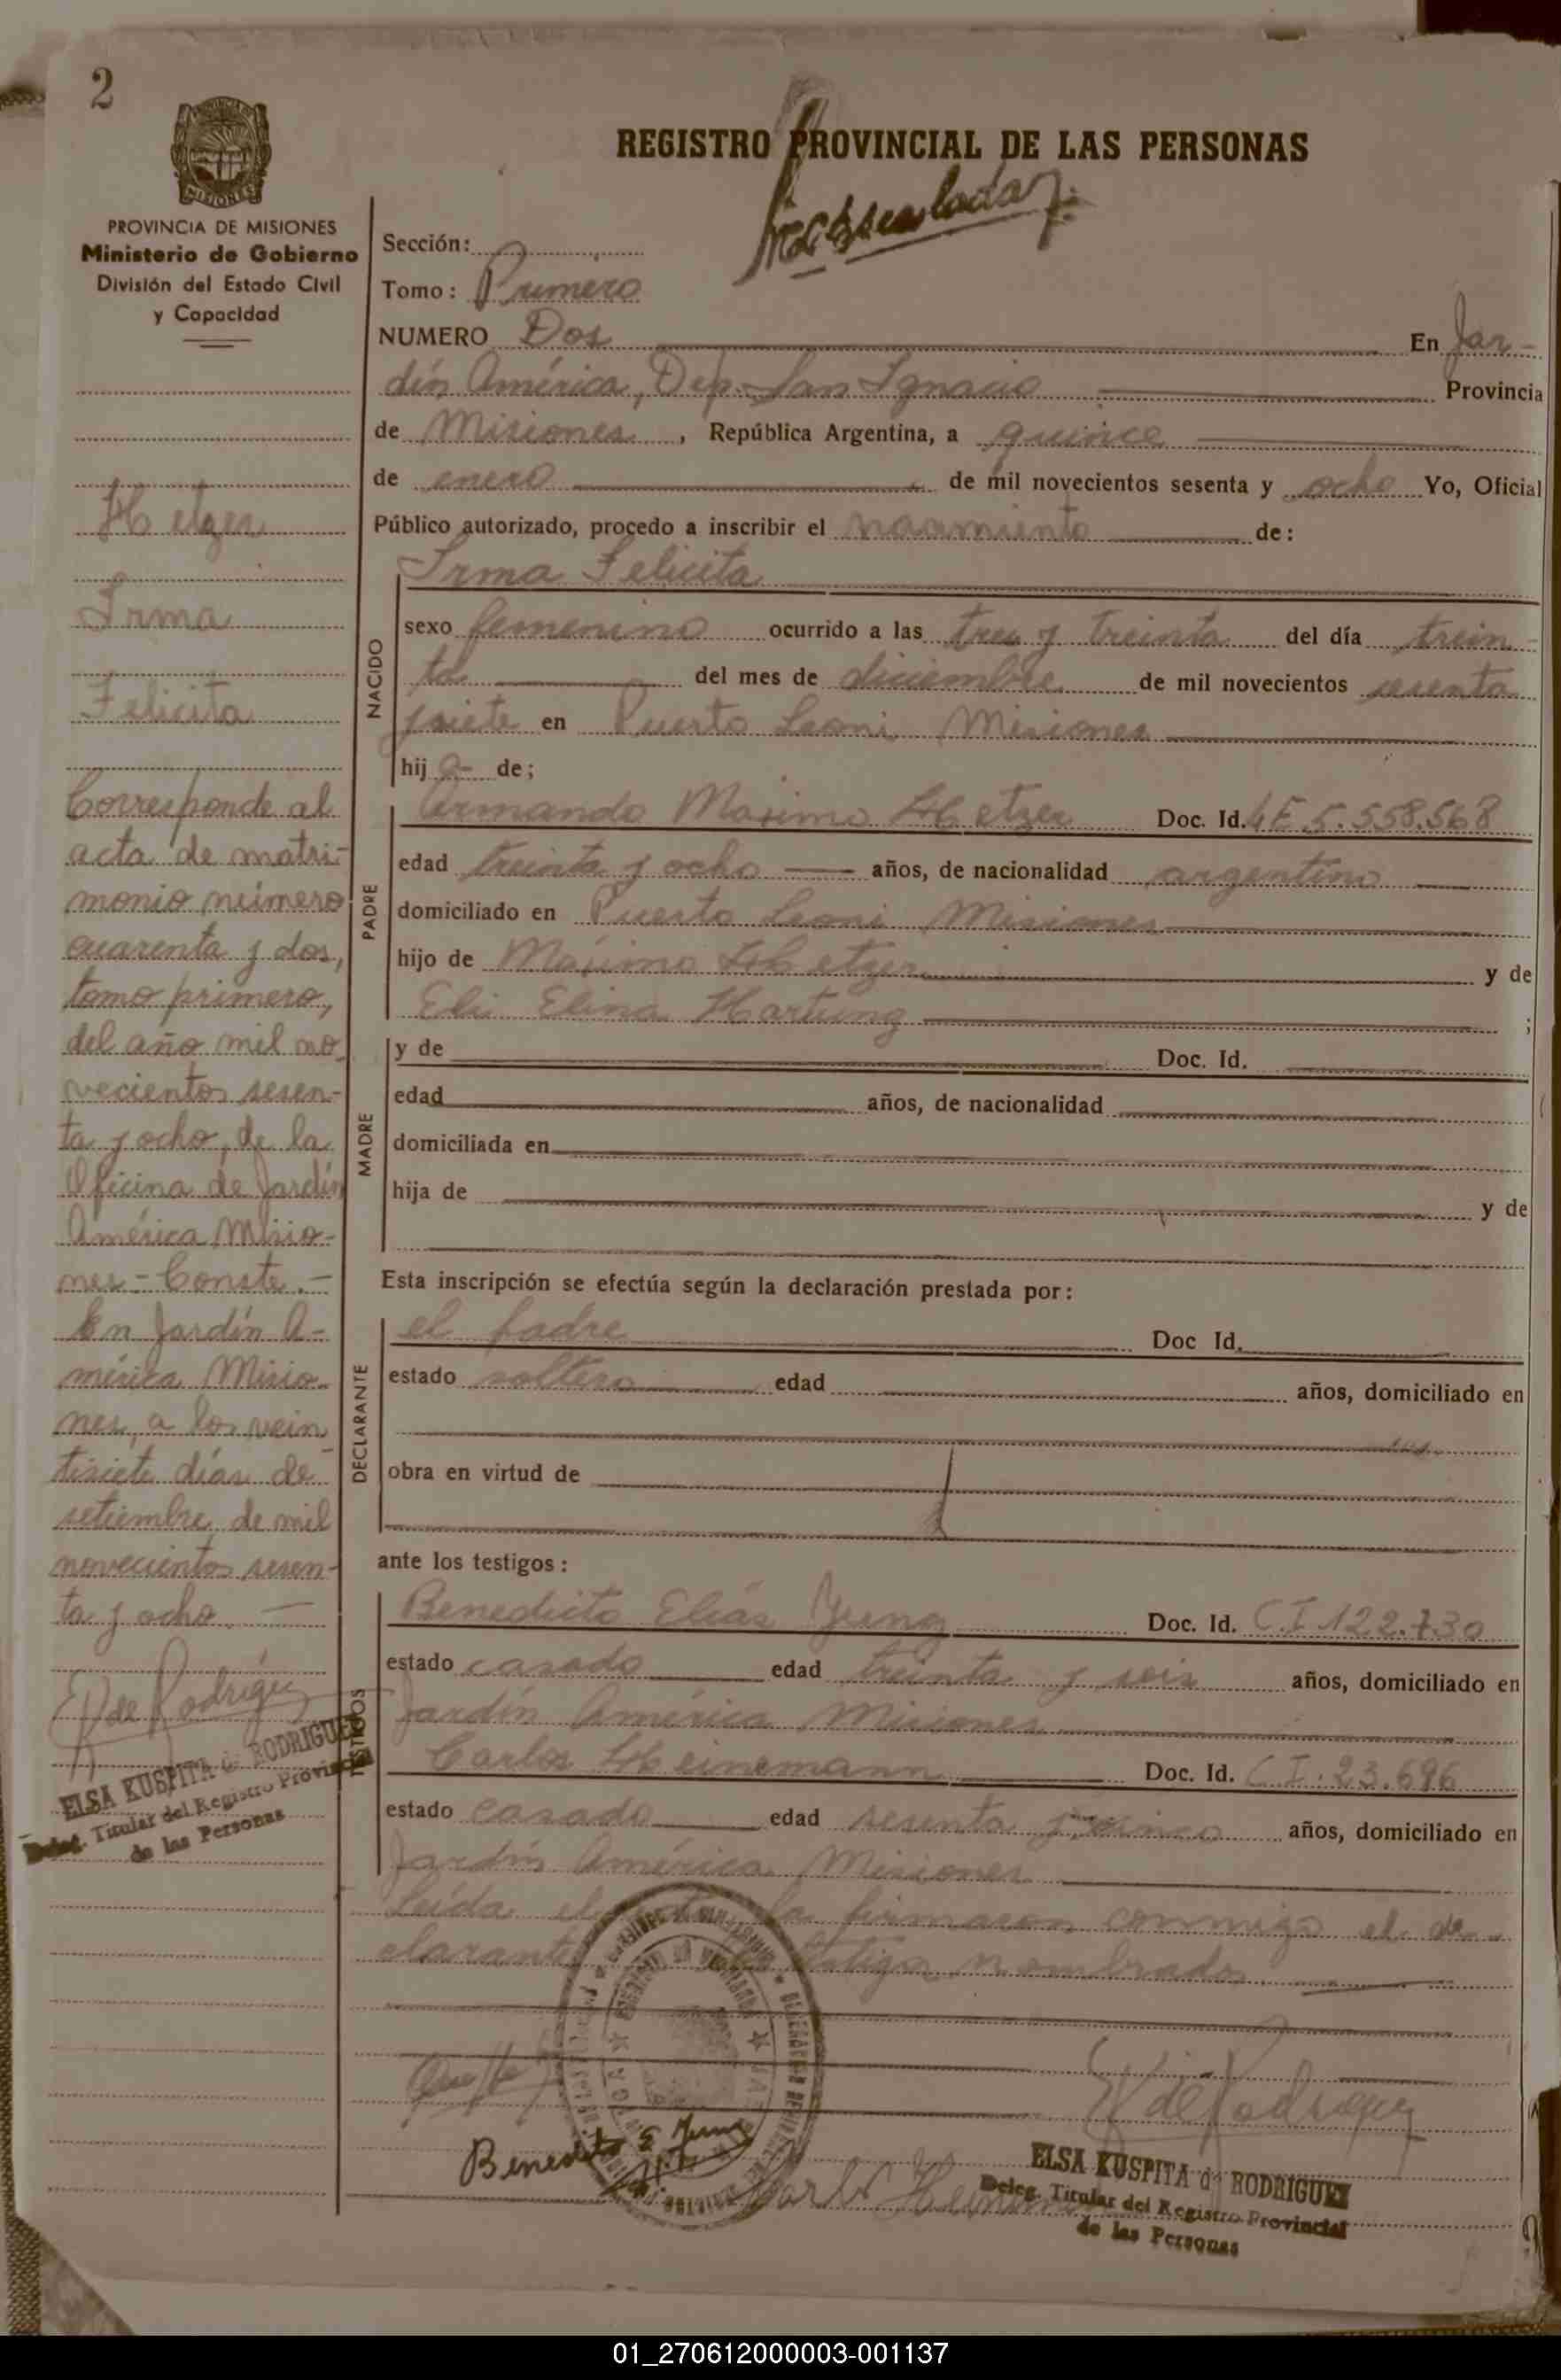 2
REGISTRO PROVINCIAL DE LAS PERSONAS
PROVINCIA DE MISIONES
Ministerio de Gobierno
División del Estado Civil
y Capacidad
Hetzer
Irma
Felicita
Corresponde al
acta de matri-
monio número
cuarenta y dos,
tomo primero,
del año mil no
vecientos sesen-
ta y ocho, de la
Oficina de Jardín
América Misio-
nes - Conste. -
En Jardín A-
mérica Misio-
nes, a los vein
tisiete días de
setiembre de mil
novecientos sesen-
ta y ocho. —
E K de Rodriguez
ELSA KUSPITA de RODRIGUEZ
Deleg. Titular del Registro Provincial
de las Personas
Sección:
Tomo: Primero
NUMERO Dos En Jar-
dín América, Dep. San Ignacio Provincia
de Misiones, República Argentina, a quince
de enero de mil novecientos sesenta y ocho Yo, Oficial
Público autorizado, procedo a inscribir el nacimiento de:
NACIDO
Irma Felicita
sexo femenino ocurrido a las tres y treinta del día trein-
ta del mes de diciembre de mil novecientos sesenta
y siete en Puerto Leoni Misiones
hija de;
PADRE
Armando Maximo Hetzer Doc. Id. LE 5.558.568
edad treinta y ocho años, de nacionalidad argentino
domiciliado en Puerto Leoni Misiones
hijo de Máximo Hetzer y de
Eli Elina Hartung ;
MADRE
y de Doc. Id.
edad años, de nacionalidad
domiciliada en
hija de y de
Esta inscripción se efectúa según la declaración prestada por:
DECLARANTE
el padre Doc Id.
estado soltero edad años, domiciliado en
obra en virtud de
ante los testigos:
TESTIGOS
Benedicto Elías Yung Doc. Id. C.I 122.730
estado casado edad treinta y seis años, domiciliado en
Jardín América Misiones
Carlos Heinemann Doc. Id. C.I. 23.696
estado casado edad sesenta y cinco años, domiciliado en
Jardín América Misiones
Leída el la firmaron conmigo el de-
clarante testigos nombrados.
E K de Rodriguez
Benedito E Yung
Carlos
ELSA KUSPITA de RODRIGUEZ
Deleg. Titular del Registro Provincial
de las Personas
01_270612000003-001137